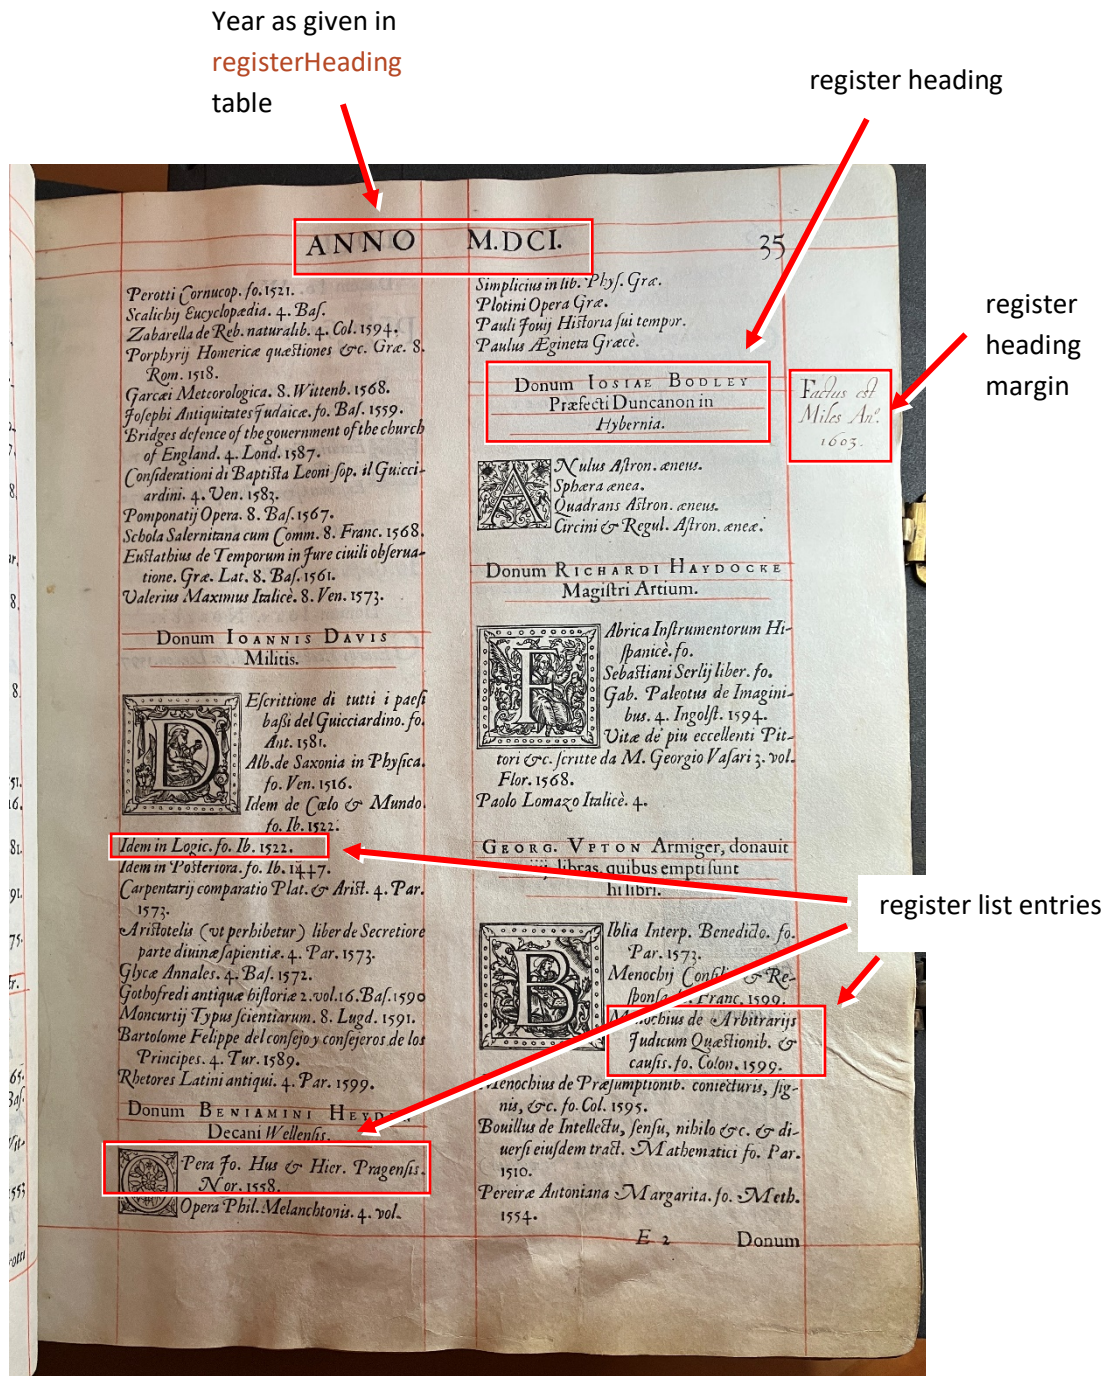 Year as given in
registerHeading
table
register heading
register
heading
margin
register list entries
ANNO M.DCI.
35
Perotti Cornucop. fo. 1521.
Scalichij Encyclopædia. 4. Baſ.
Zabarella de Reb. naturalib. 4. Col. 1594.
Porphyrij Homericæ quæſtiones &c. Græ. 8.
Rom. 1518.
Garcæi Meteorologica. 8. Wittenb. 1568.
Joſephi Antiquitates Judaicæ. fo. Baſ. 1559.
Bridges defence of the gouernment of the church
of England. 4. Lond. 1587.
Conſiderationi di Baptiſta Leoni ſop. il Guicci-
ardini. 4. Ven. 1583.
Pomponatij Opera. 8. Baſ. 1567.
Schola Salernitana cum Comm. 8. Franc. 1568.
Euſtathius de Temporum in Jure ciuili obſerua-
tione. Græ. Lat. 8. Baſ. 1561.
Valerius Maximus Italicè. 8. Ven. 1573.
Donum IOANNIS DAVIS
Militis.
DEſcrittione di tutti i paeſi
baſſi del Guicciardino. fo.
Ant. 1581.
Alb. de Saxonia in Phyſica.
fo. Ven. 1516.
Idem de Cœlo & Mundo.
fo. Ib. 1522.
Idem in Logic. fo. Ib. 1522.
Idem in Poſteriora. fo. Ib.
Carpentarij comparatio Plat. & Ariſt. 4. Par.
1573.
Ariſtotelis (vt perhibetur) liber de Secretiore
parte diuinæ ſapientiæ. 4. Par. 1573.
Glycæ Annales. 4. Baſ. 1572.
Gothofredi antiquæ hiſtoriæ 2. vol. 16. Baſ. 1590
Moncurtij Typus ſcientiarum. 8. Lugd. 1591.
Bartolome Felippe del conſejo y conſejeros de los
Principes. 4. Tur. 1589.
Rhetores Latini antiqui. 4. Par. 1599.
Donum BENIAMINI
Decani Wellenſis.
OPera Jo. Hus & Hier. Pragenſis.
Nor. 1558.
Opera Phil. Melanchtonis. 4. vol.
Simplicius in lib. Phyſ. Græ.
Plotini Opera Græ.
Pauli Jouij Hiſtoria ſui tempor.
Paulus Ægineta Græcè.
Donum IOSIAE BODLEY
Præfecti Duncanon in
Hybernia.
Factus eſt
Miles Anº.
1603.
ANulus Aſtron. æneus.
Sphæra ænea.
Quadrans Aſtron. æneus.
Circini & Regul. Aſtron. æneæ.
Donum RICHARDI HAYDOCKE
Magiſtri Artium.
FAbrica Inſtrumentorum Hi-
ſpanicè. fo.
Sebaſtiani Serlij liber. fo.
Gab. Paleotus de Imagini-
bus. 4. Ingolſt. 1594.
Vitæ de' piu eccellenti Pit-
tori &c. ſcritte da M. Georgio Vaſari 3. vol.
Flor. 1568.
Paolo Lomazo Italicè. 4.
GEORG. VPTON Armiger, donauit
libras, quibus empti ſunt
hi libri.
BIblia Interp. Benedicto. fo.
Par. 1573.
Menochij Conſilia & Re-
ſponſa. Franc. 1599.
Menochius de Arbitrarijs
Judicum Quæſtionib. &
cauſis. fo. Colon. 1599.
Menochius de Præſumptionib. coniecturis, ſig-
nis, &c. fo. Col. 1595.
Bouillus de Intellectu, ſenſu, nihilo &c. & di-
uerſi eiuſdem tract. Mathematici fo. Par.
1510.
Pereiræ Antoniana Margarita. fo. Meth.
1554.
E 2 Donum